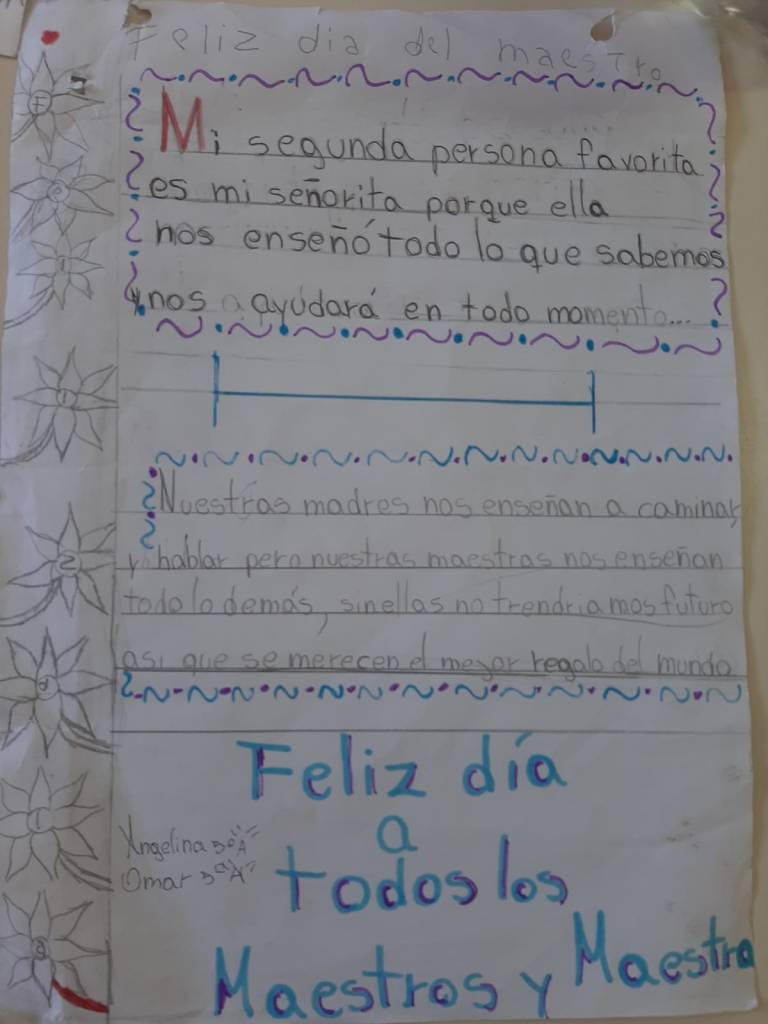 Feliz dia del maestro
Mi segunda persona favorita
es mi señorita porque ella
nos enseñó todo lo que sabemos
y nos ayudará en todo momento...
Nuestras madres nos enseñan a caminar,
y hablar pero nuestras maestras nos enseñan
todo lo demás, sin ellas no trendriamos futuro
así que se merecen el meyor regalo del mundo
Feliz día
a
todos los
Maestros y Maestra
Angelina 5º"A"
Omar 5º"A"